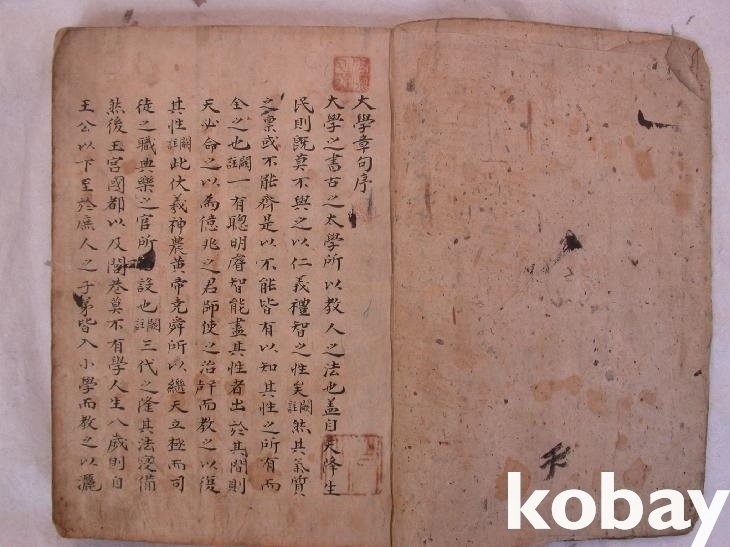 大學章句序
大學之書古之太學所以教人之法也盖自天降生
民則既莫不與之以仁義禮智之性矣闕註然其氣質
之禀或不能齊是以不能皆有以知其性之所有而
全之也闕註一有聰明睿智能盡其性者出於其間則
天必命之以為億兆之君師使之治而教之以復
其性闕註此伏羲神農黃帝堯舜所以繼天立極而司
徒之職典樂之官所設也闕註三代之隆其法寖備
然後王宮國都以及閭巷莫不有學人生八歲則自
王公以下至於庶人之子弟皆入小學而教之以灑
kobay